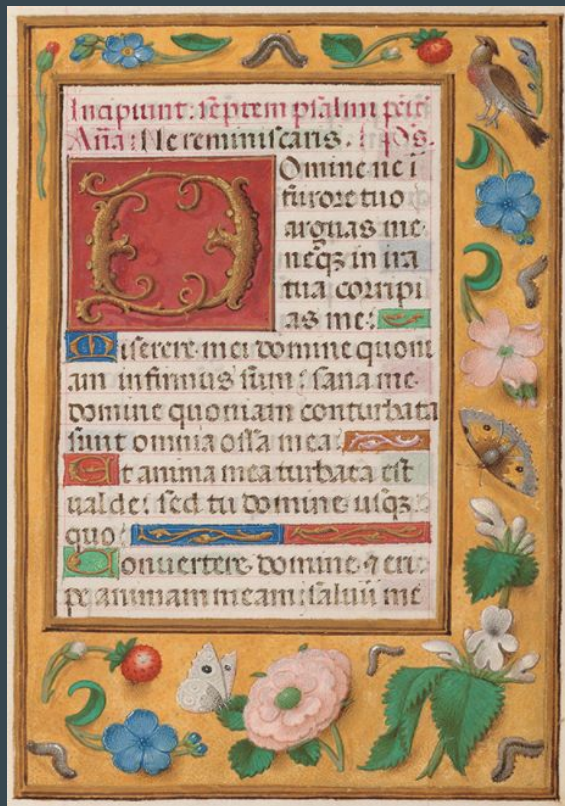 Incipiunt: septem psalmi peīt̄
Añā: Ne reminiscaris. ps̄.
Domine ne ī
furore tuo
arguas me
neqz in ira
tua corripi
as me:
Miserere mei domine quoni
am infirmus sum: sana me
domine quoniam conturbata
sunt omnia ossa mea:
Et anima mea turbata est
ualde: sed tu domine usqz
quo:
Conuertere domine ⁊ eri
pe animam meam: saluū me